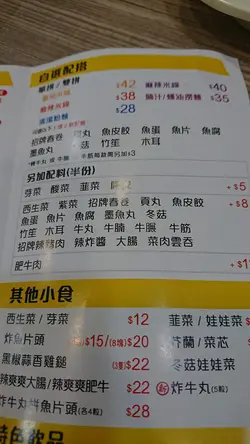 自選配搭
單拼 / 雙拼 $42 麻辣米線 $40
$38 腩汁 / 蠔油撈麵 $35
$28
招牌春卷 貢丸 魚皮餃 魚蛋 魚片 魚腐
墨魚丸 竹笙 木耳
另加配料(半份)
芽菜 酸菜 韮菜 $5
西生菜 紫菜 招牌春卷 貢丸 魚皮餃 $8
魚蛋 魚片 魚腐 墨魚丸 冬菇
竹笙 木耳 牛丸 牛腩 牛𦟌 牛筋
招牌辣豬肉 辣炸醬 大腸 菜肉雲吞
肥牛肉
其他小食
西生菜 / 芽菜 $12 韮菜 / 娃娃菜
炸魚片頭 $15/(8塊)$20 芥蘭 / 菜芯
黑椒蒜香雞鎚 (3隻)$22 冬菇娃娃菜
辣爽爽大腸 / 辣爽爽肥牛 $22 新 炸牛丸(5粒)
炸牛丸拼魚片頭(各4粒) $28
特色飲品